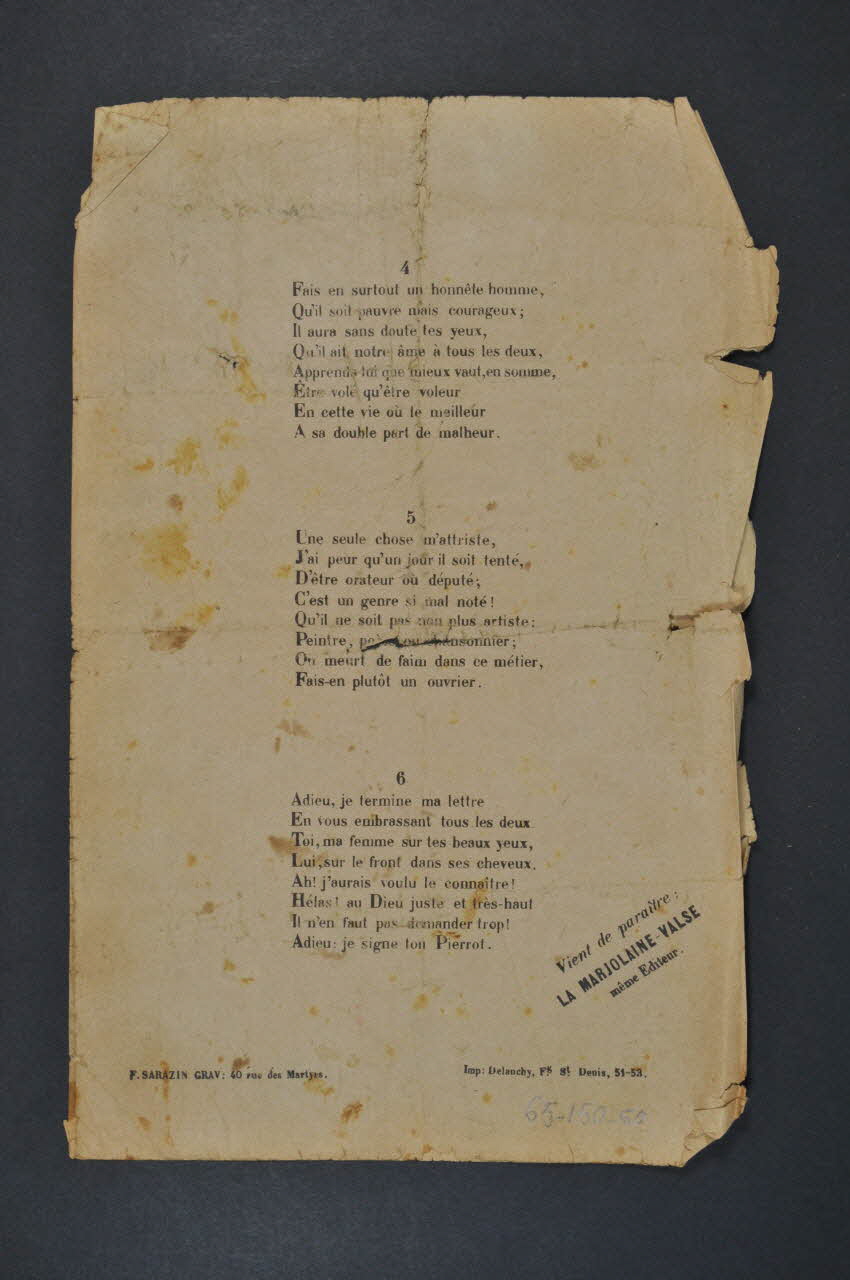 4
Fais en surtout un honnête homme,
Qu'il soit pauvre mais courageux;
Il aura sans doute tes yeux,
Qu'il ait notre âme à tous les deux,
Apprends lui que mieux vaut, en somme,
Être volé qu'être voleur
En cette vie où le meilleur
A sa double part de malheur.
5
Une seule chose m'attriste,
J'ai peur qu'un jour il soit tenté,
D'être orateur ou député;
C'est un genre si mal noté!
Qu'il ne soit pas non plus artiste:
Peintre, ou chansonnier;
On meurt de faim dans ce métier,
Fais-en plutôt un ouvrier.
6
Adieu, je termine ma lettre
En vous embrassant tous les deux
Toi, ma femme sur tes beaux yeux,
Lui, sur le front dans ses cheveux.
Ah! j'aurais voulu le connaître!
Hélas! au Dieu juste et très-haut
Il n'en faut pas demander trop!
Adieu: je signe ton Pierrot.
Vient de paraître:
LA MARJOLAINE-VALSE
même Editeur.
F. SARAZIN GRAV: 40 rue des Martyrs.
Imp: Delanchy, Fg St Denis, 51-53.